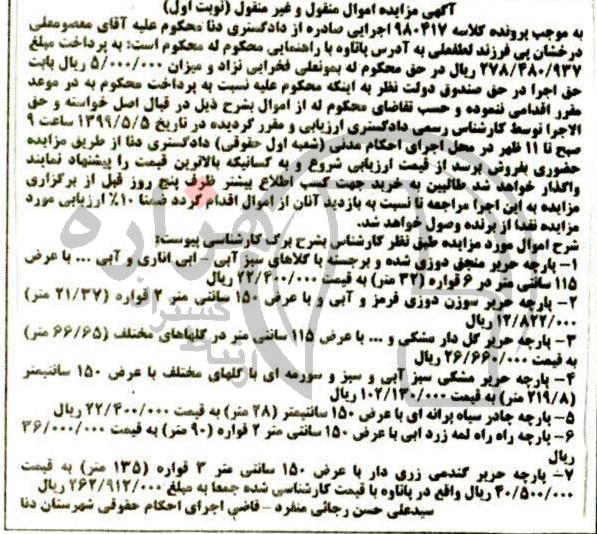 آگهی مزایده اموال منقول و غیر منقول (نوبت اول)
به موجب پرونده کلاسه ۹۸۰۴۱۷ اجرایی صادره از دادگستری دنا محکوم علیه آقای معصومعلی
درخشان پی فرزند لطفعلی به آدرس پاتاوه با راهنمایی محکوم له محکوم است: به پرداخت مبلغ
۲۷۸/۴۸۰/۹۳۷ ریال در حق محکوم له بمونعلی فخرایی نژاد و میزان ۵/۰۰۰/۰۰۰ ریال بابت
حق اجرا در حق صندوق دولت نظر به اینکه محکوم علیه نسبت به پرداخت محکوم به در موعد
مقرر اقدامی ننموده و حسب تقاضای محکوم له از اموال بشرح ذیل در قبال اصل خواسته و حق
الاجرا توسط کارشناس رسمی دادگستری ارزیابی و مقرر گردیده در تاریخ ۱۳۹۹/۵/۵ ساعت ۹
صبح تا ۱۱ ظهر در محل اجرای احکام مدنی (شعبه اول حقوقی) دادگستری دنا از طریق مزایده
حضوری بفروش برسد از قیمت ارزیابی شروع و به کسانیکه بالاترین قیمت را پیشنهاد نمایند
واگذار خواهد شد طالبین به خرید جهت کسب اطلاع بیشتر ظرف پنج روز قبل از برگزاری
مزایده به این اجرا مراجعه تا نسبت به بازدید آنان از اموال اقدام گردد ضمنا ۱۰٪ ارزیابی مورد
مزایده نقدا از برنده وصول خواهد شد.
شرح اموال مورد مزایده طبق نظر کارشناس بشرح برگ کارشناسی پیوست:
۱- پارچه حریر منجق دوزی شده و برجسته با کلاهای سبز آبی - ابی اناری و آبی ... با عرض
۱۱۵ سانتی متر در ۶ قواره (۳۲ متر) به قیمت ۲۲/۴۰۰/۰۰۰ ریال
۲- پارچه حریر سوزن دوزی قرمز و آبی و با عرض ۱۵۰ سانتی متر ۲ قواره (۲۱/۳۷ متر)
۱۲/۸۲۲/۰۰۰ ریال
۳- پارچه حریر گل دار مشکی و ... با عرض ۱۱۵ سانتی متر در گلهاهای مختلف (۶۶/۶۵ متر)
به قیمت ۲۶/۶۶۰/۰۰۰ ریال
۴- پارچه حریر مشکی سبز آبی و سبز و سورمه ای با گلهای مختلف با عرض ۱۵۰ سانتیمتر
(۲۱۹/۸ متر) به قیمت ۱۰۲/۱۳۰/۰۰۰ ریال
۵- پارچه چادر سیاه پرانه ای با عرض ۱۵۰ سانتیمتر (۲۸ متر) به قیمت ۲۲/۴۰۰/۰۰۰ ریال
۶- پارچه راه راه لمه زرد ابی با عرض ۱۵۰ سانتی متر ۲ قواره (۹۰ متر) به قیمت ۳۶/۰۰۰/۰۰۰
ریال
۷- پارچه حریر گندمی زری دار با عرض ۱۵۰ سانتی متر ۳ قواره (۱۳۵ متر) به قیمت
۴۰/۵۰۰/۰۰۰ ریال واقع در پاتاوه با قیمت کارشناسی شده جمعا به مبلغ ۲۶۲/۹۱۲/۰۰۰ ریال
سیدعلی حسن رجائی منفرد - قاضی اجرای احکام حقوقی شهرستان دنا